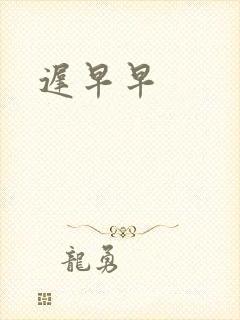 遲早早
龍勇